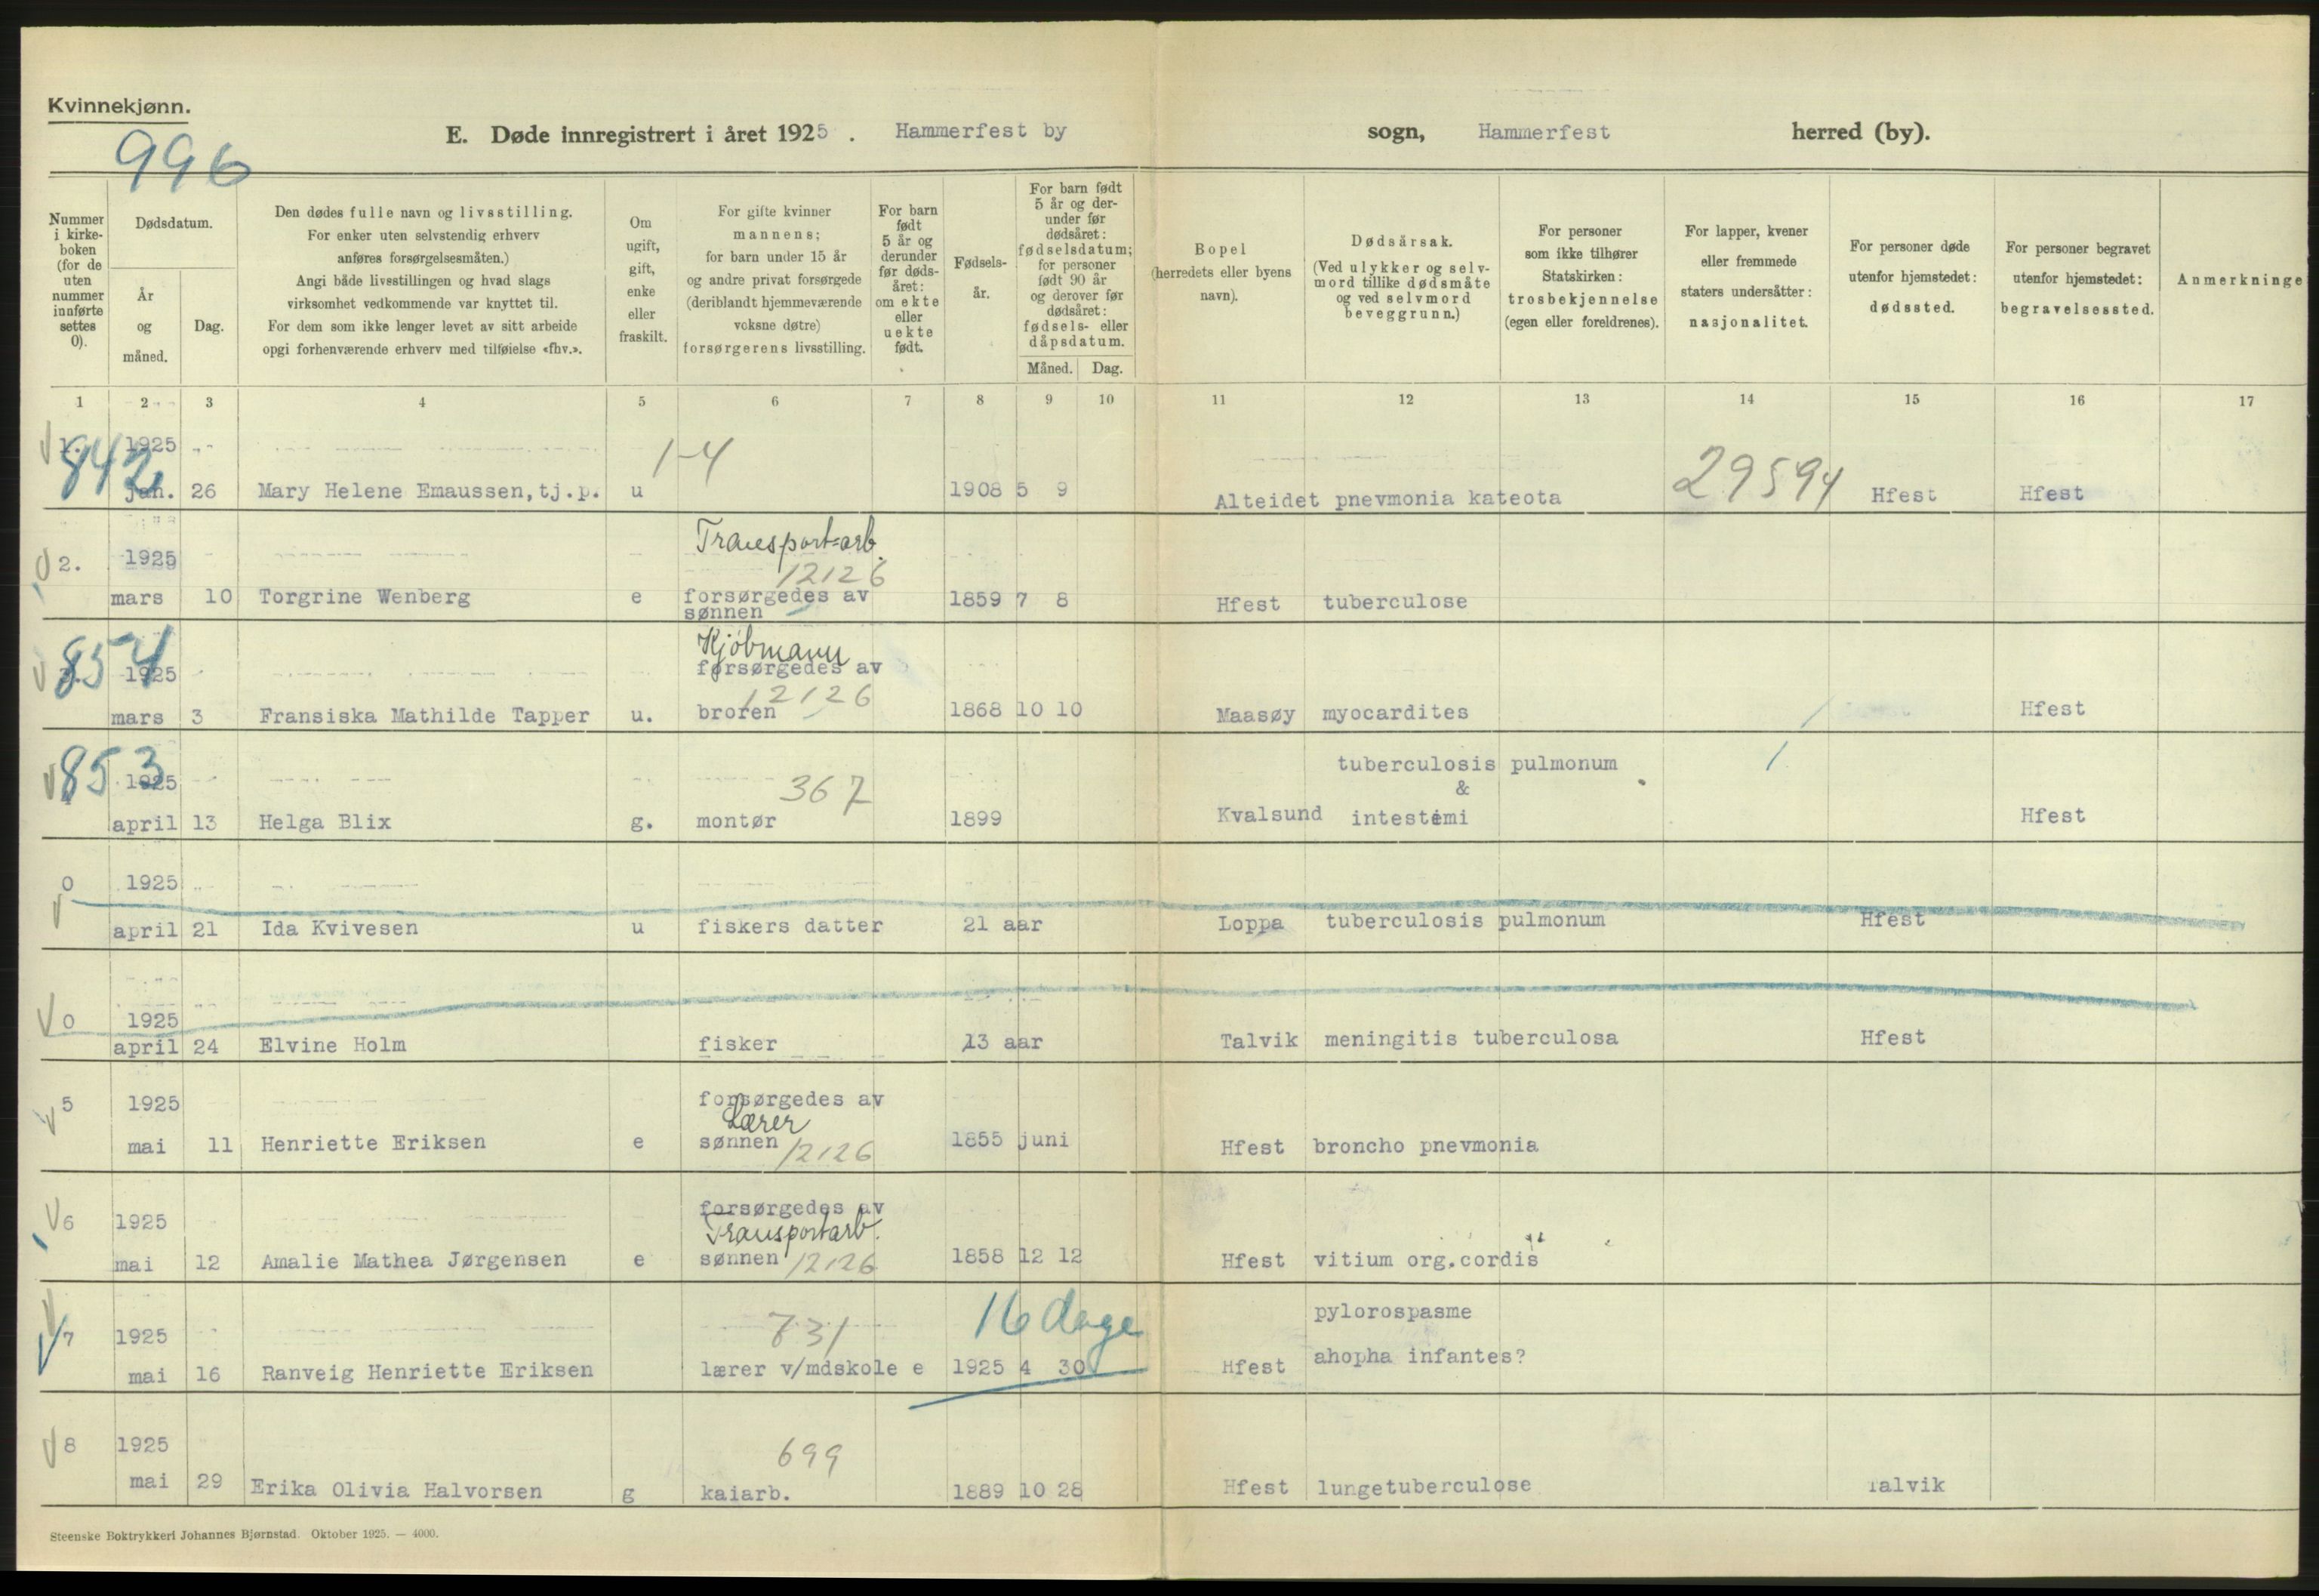 Kvinnekjønn.
996
E. Døde innregistrert i året 1925 . Hammerfest by sogn, Hammerfest herred (by).
Nummer i kirke-boken (for de uten nummer innførte settes 0).
Dødsdatum.
År og måned.
Dag.
Den dødes fulle navn og livsstilling.
For enker uten selvstendig erhverv
anføres forsørgelsesmåten.)
Angi både livsstillingen og hvad slags
virksomhet vedkommende var knyttet til.
For dem som ikke lenger levet av sitt arbeide
opgi forhenværende erhverv med tilføielse «fhv.».
Om ugift, gift, enke eller fraskilt.
For gifte kvinner
mannens;
for barn under 15 år
og andre privat forsørgede
(deriblandt hjemmeværende
voksne døtre)
forsørgerens livsstilling.
For barn født 5 år og derunder før døds-året: om ekte eller uekte født.
Fødsels-år.
For barn født 5 år og der-under før dødsåret: fødselsdatum; for personer født 90 år og derover før dødsåret: fødsels- eller dåpsdatum.
Måned. Dag.
Bopel
(herredets eller byens
navn).
Dødsårsak.
(Ved ulykker og selv-
mord tillike dødsmåte
og ved selvmord
beveggrunn.)
For personer
som ikke tilhører
Statskirken:
trosbekjennelse
(egen eller foreldrenes).
For lapper, kvener
eller fremmede
staters undersåtter:
nasjonalitet.
For personer døde
utenfor hjemstedet:
dødssted.
For personer begravet
utenfor hjemstedet:
begravelsessted.
Anmerkninge
1 2 3 4 5 6 7 8 9 10 11 12 13 14 15 16 17
842 1925 1-4 29594
jan. 26 Mary Helene Emaussen, tj.p. u 1908 5 9 Alteidet pnevmonia kateota Hfest Hfest
Transport=arb.
2. 1925 12126
mars 10 Torgrine Wenberg e forsørgedes av 1859 7 8 Hfest tuberculose
sønnen
Kjöbmann
854 1925 forsørgedes av
12126
mars 3 Fransiska Mathilde Tapper u. broren 1868 10 10 Maasøy myocardites Hfest
853 1925 367 tuberculosis pulmonum
&
april 13 Helga Blix g. montør 1899 Kvalsund intestimi Hfest
0 1925
april 21 Ida Kvivesen u fiskers datter 21 aar Loppa tuberculosis pulmonum Hfest
0 1925
april 24 Elvine Holm fisker 13 aar Talvik meningitis tuberculosa Hfest
5 1925 forsørgedes av
Lærer
mai 11 Henriette Eriksen e sønnen 12126 1855 juni Hfest broncho pnevmonia
6 1925 forsørgedes av
Transportarb.
mai 12 Amalie Mathea Jørgensen e sønnen 12126 1858 12 12 Hfest vitium org.cordis
7 1925 731 16 dage pylorospasme
mai 16 Ranveig Henriette Eriksen lærer v/mdskole e 1925 4 30 Hfest ahopha infantes?
8 1925 699
mai 29 Erika Olivia Halvorsen g kaiarb. 1889 10 28 Hfest lungetuberculose Talvik
Steenske Boktrykkeri Johannes Bjørnstad. Oktober 1925. — 4000.